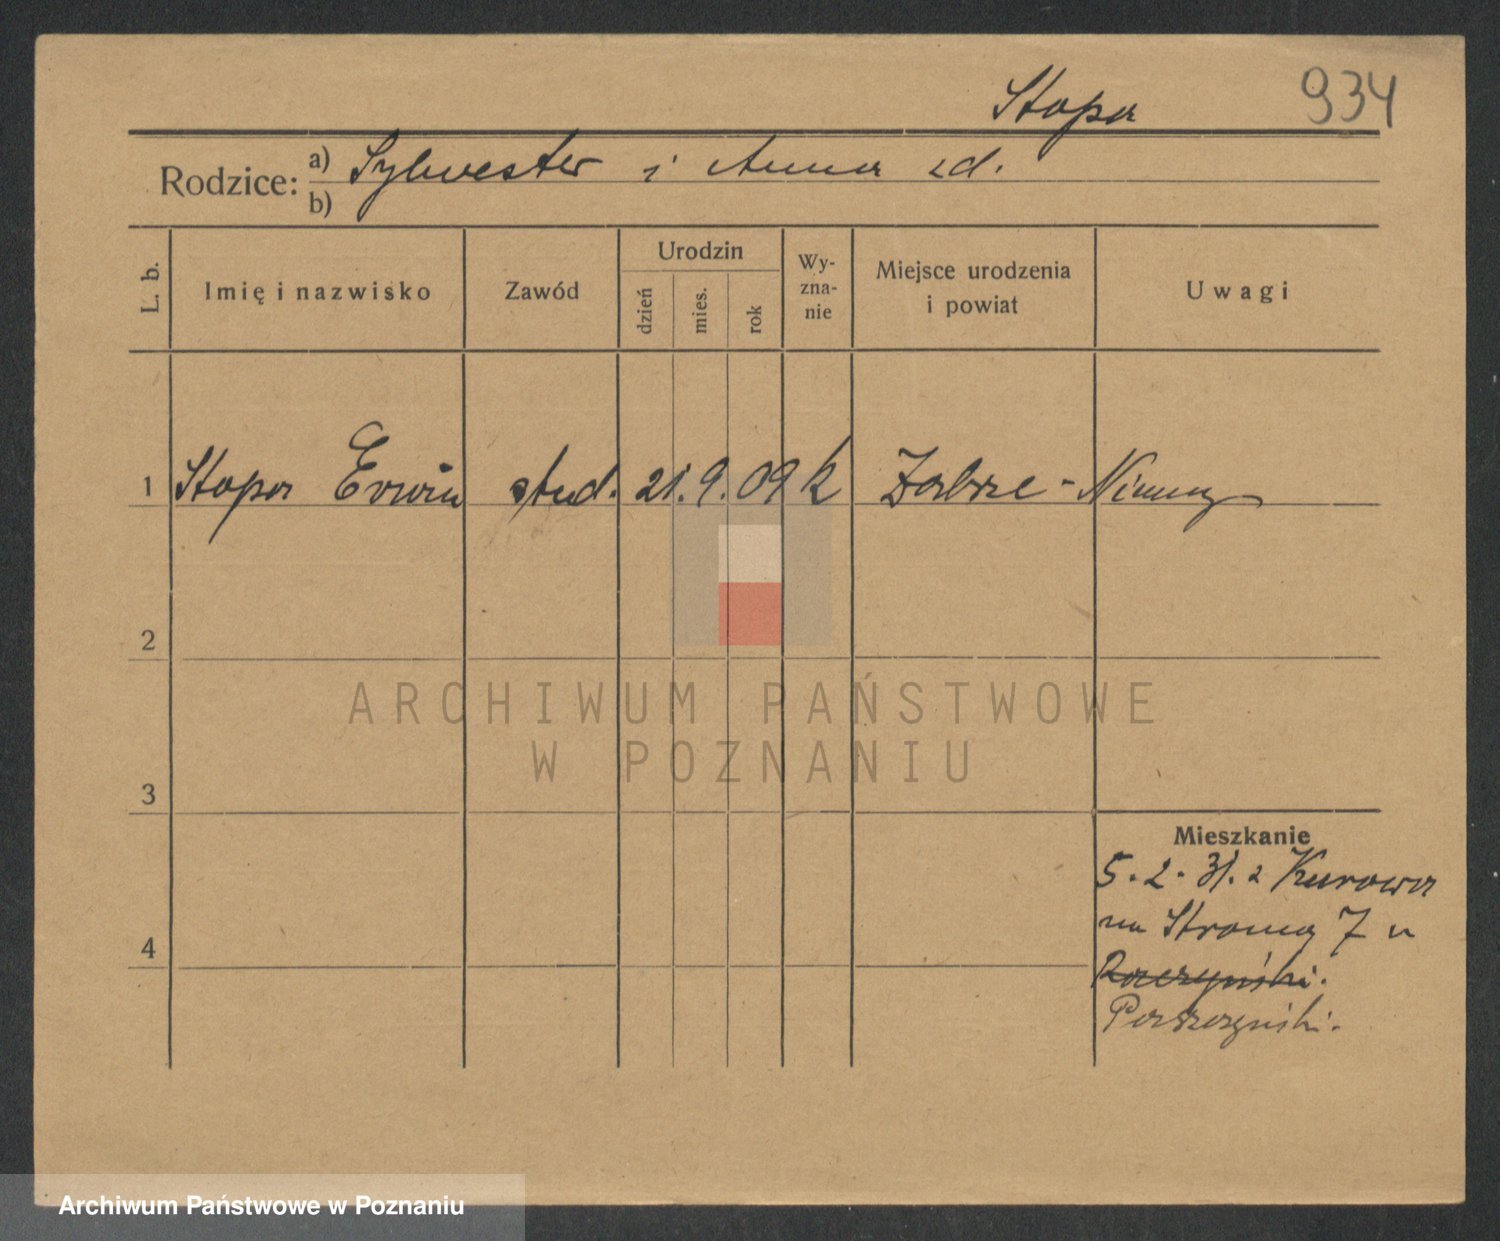 Stopa 934
Rodzice: a) Sylwester i Anna zd.
b)
L. b. Imię i nazwisko Zawód Urodzin dzień mies. rok Wy-zna-nie Miejsce urodzenia i powiat Uwagi
1 Stopa Erwin stud. 21. 9. 09 k Zabrze - Niemcy
2
ARCHIWUM PAŃSTWOWE
W POZNANIU
3
Mieszkanie
5. 2. 31. z Kurowa
na Stroma 7 u
4
Archiwum Państwowe w Poznaniu